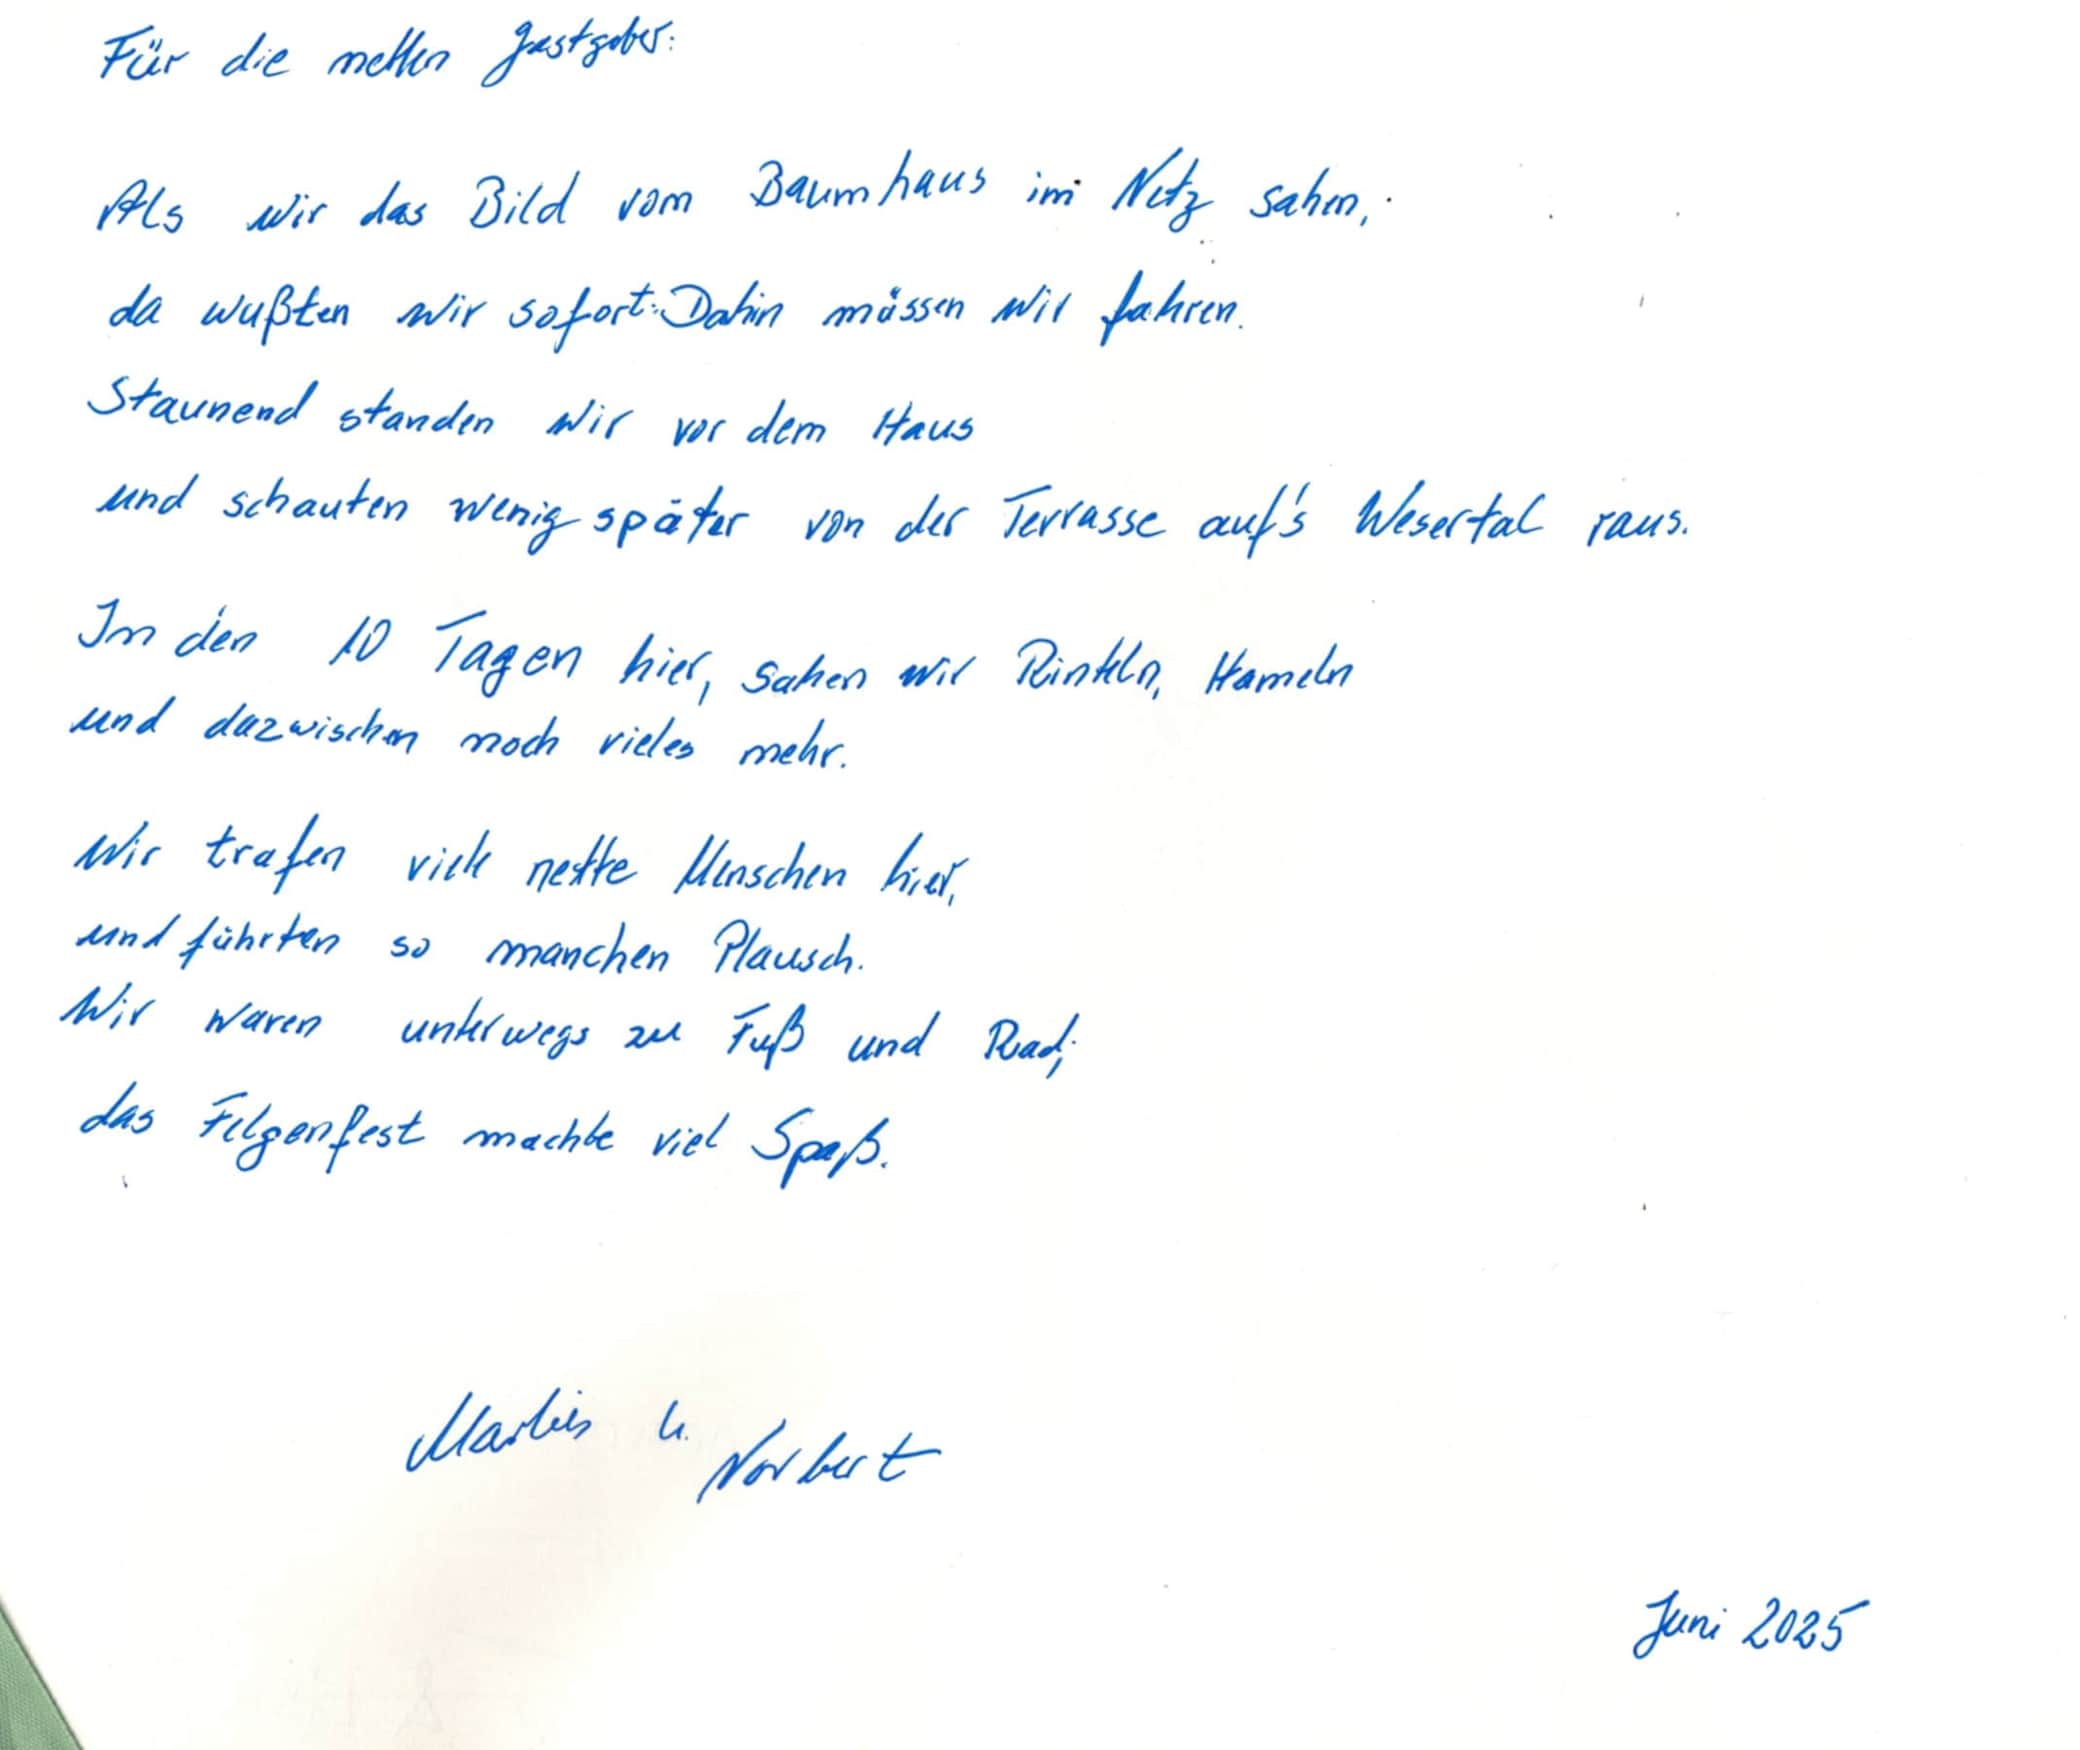 Für die netten Gastgeber:
Als wir das Bild vom Baumhaus im Netz sahen,
da wußten wir sofort: Dahin müssen wir fahren.
Staunend standen wir vor dem Haus
und schauten wenig später von der Terrasse auf's Wesertal raus.
In den 10 Tagen hier, sahen wir Rinteln, Hameln
und dazwischen noch vieles mehr.
Wir trafen viele nette Menschen hier,
und führten so manchen Plausch.
Wir waren unterwegs zu Fuß und Rad;
das Felgenfest machte viel Spaß.
Marlies u. Norbert
Juni 2025